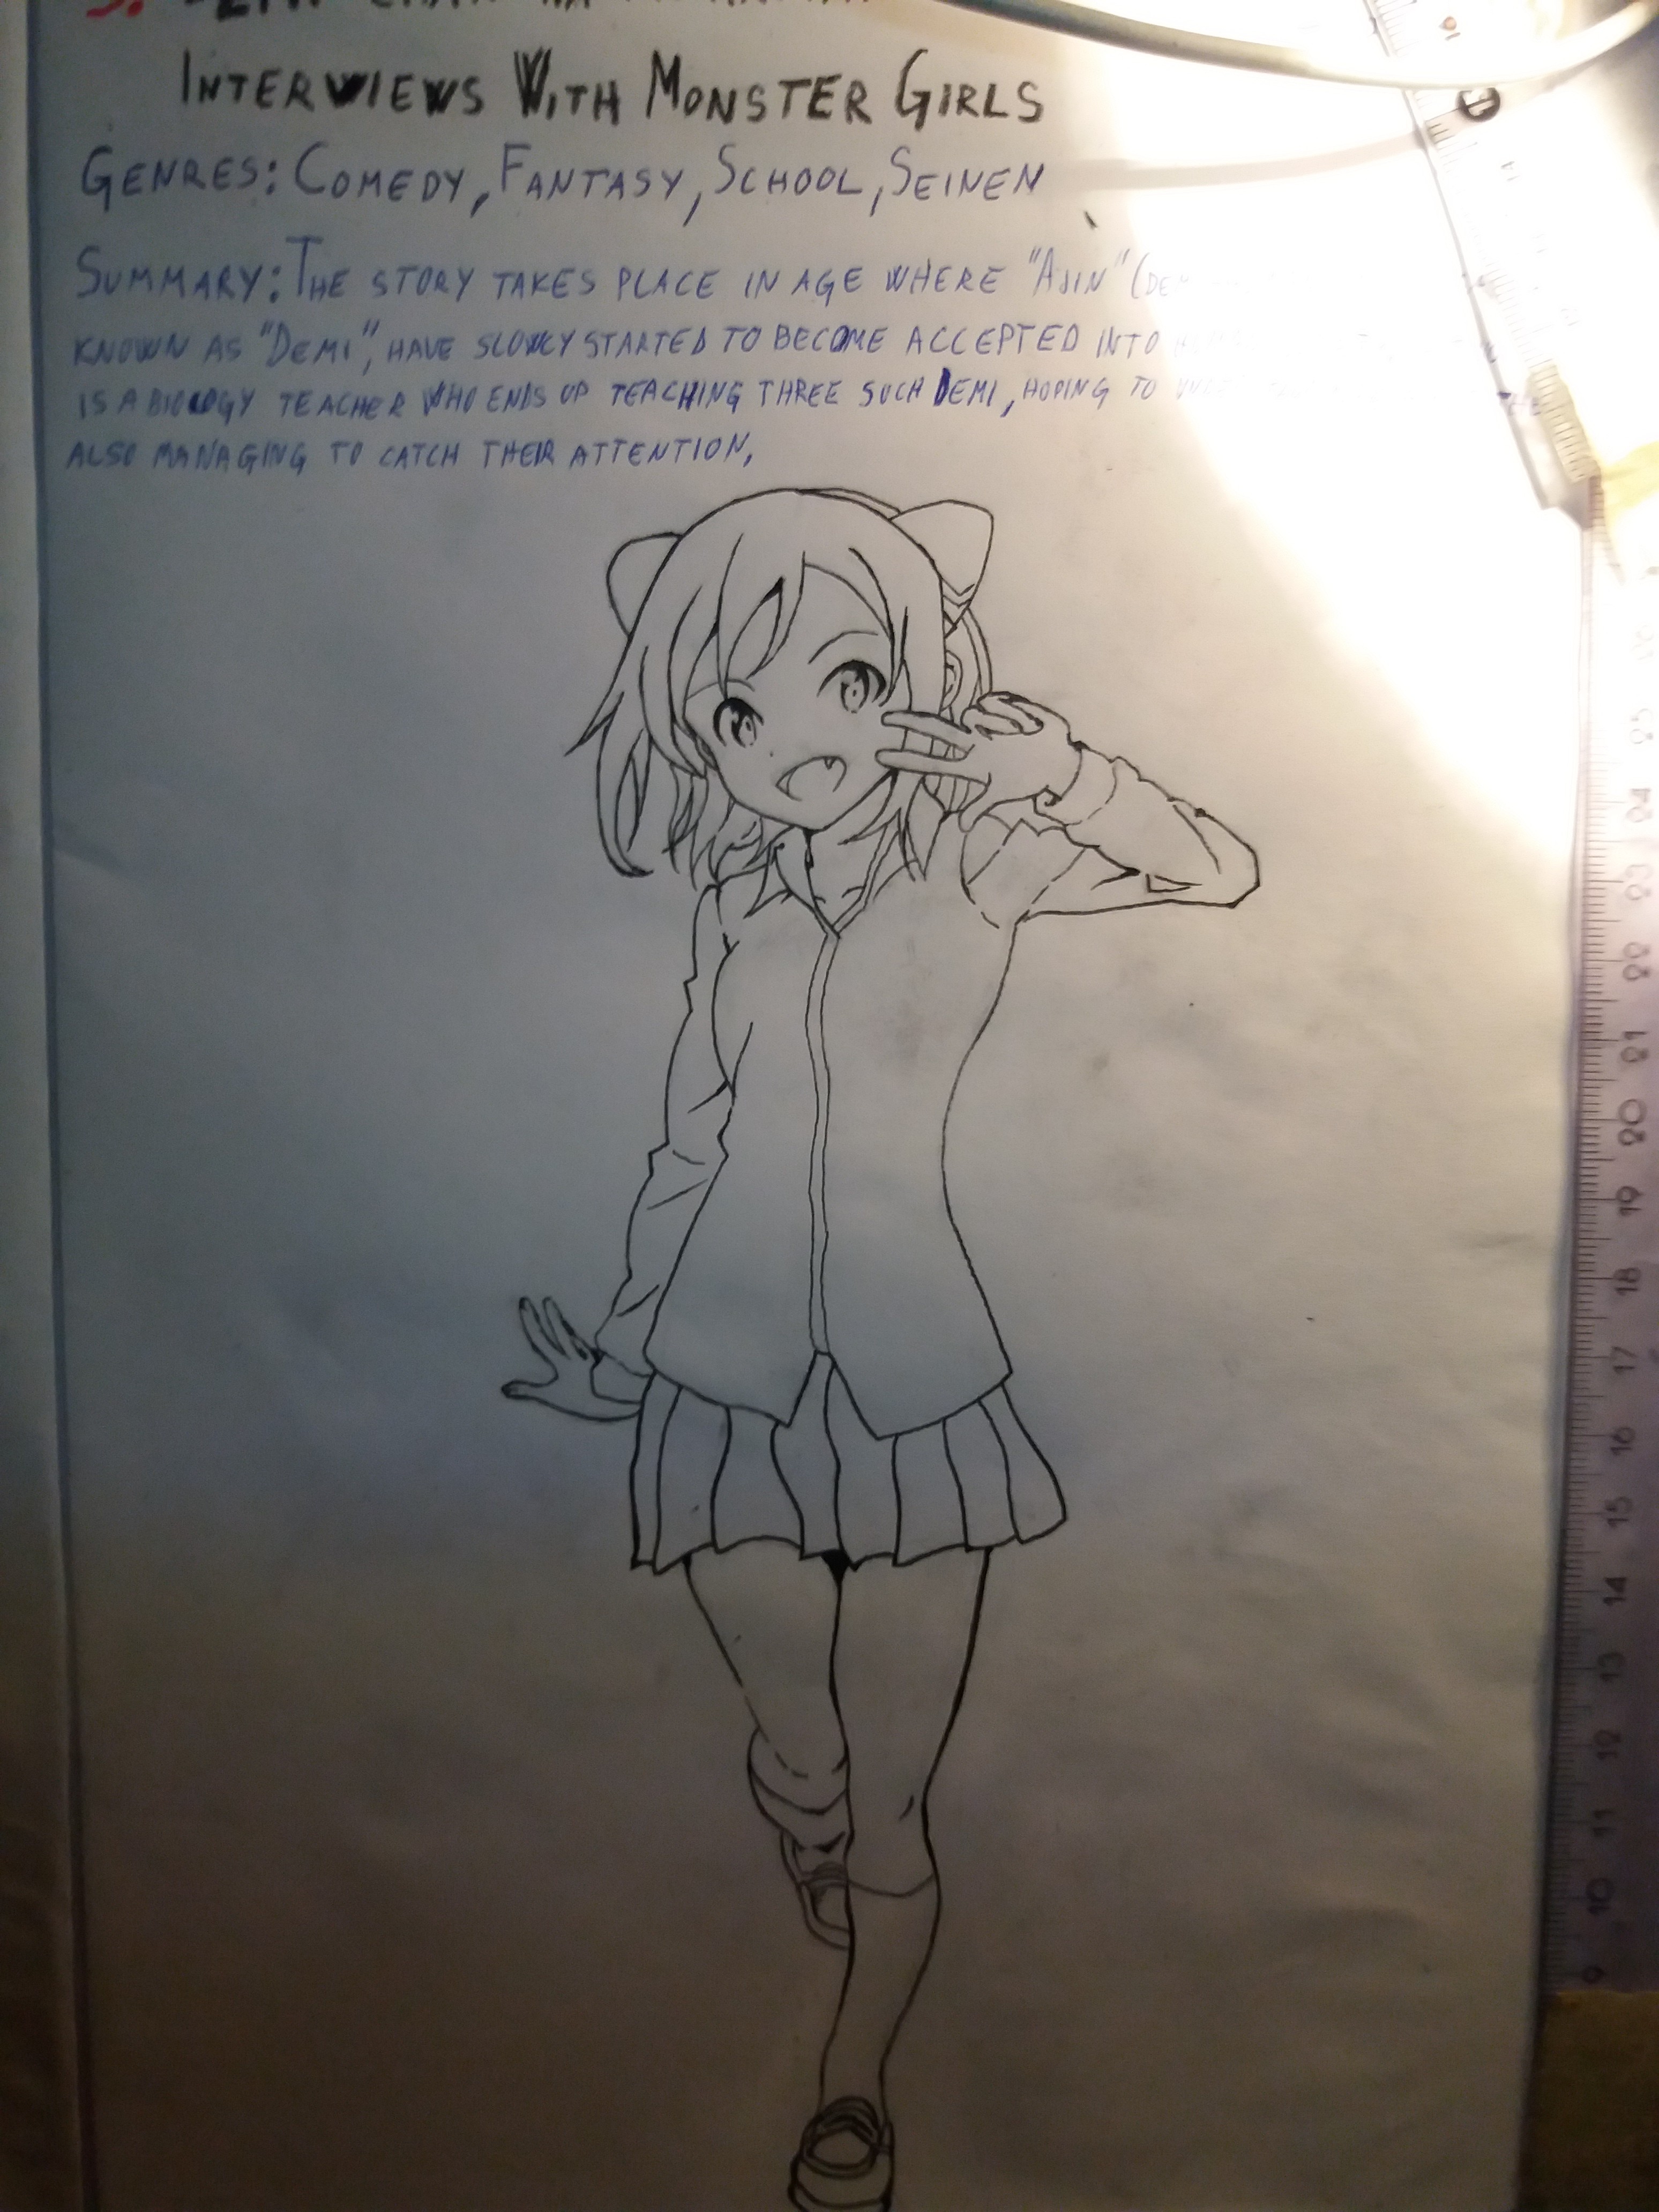 INTERVIEWS WITH MONSTER GIRLS
GENRES: COMEDY, FANTASY, SCHOOL, SEINEN
SUMMARY: THE STORY TAKES PLACE IN AGE WHERE "AJIN" (
KNOWN AS "DEMI", HAVE SLOWLY STARTED TO BECOME ACCEPTED INTO
IS A BIOLOGY TEACHER WHO ENDS UP TEACHING THREE SUCH DEMI, HOPING TO
ALSO MANAGING TO CATCH THEIR ATTENTION,
25
24
23
22
21
20
19
18
17
16
15
14
13
12
11
10
9